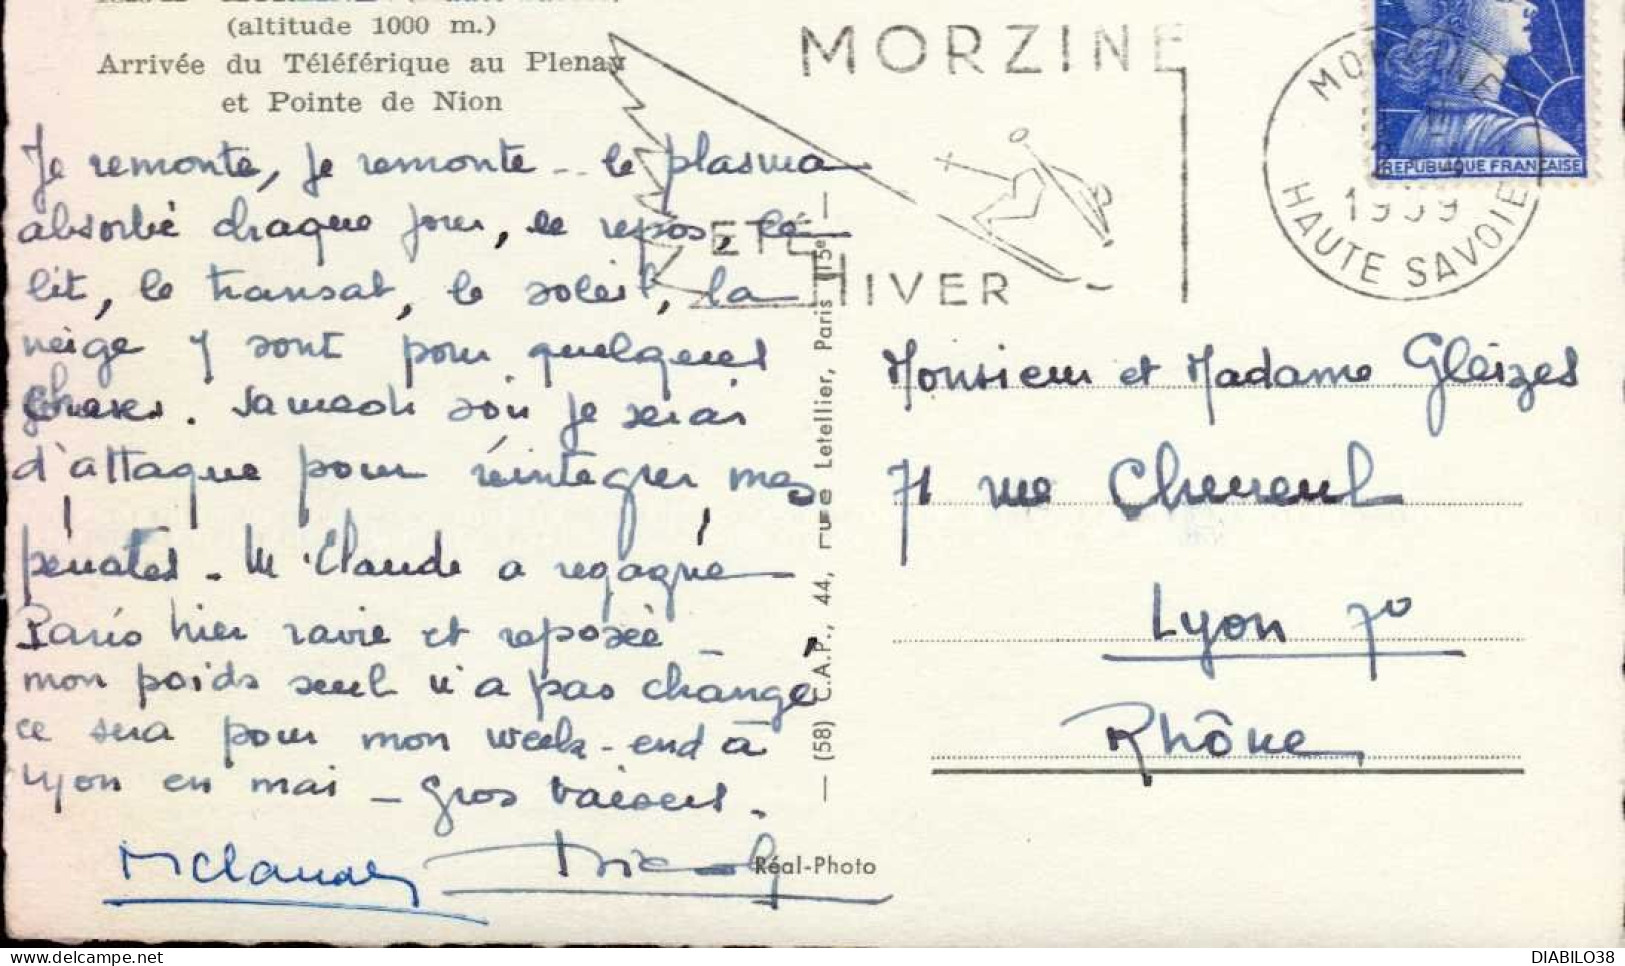 (altitude 1000 m.)
Arrivée du Téléférique au Plenay
et Pointe de Nion
Je remonte, je remonte -- le plasma
absorbé chaque jour, le repos, le
lit, le transat, le soleil, la
neige y sont pour quelques
choses. Samedi soir je serai
d'attaque pour réintégrer mes
pénates - M. Claude a regagné
Paris hier ravie et reposée -
mon poids seul n'a pas changé,
ce sera pour mon week-end à
Lyon en mai - Gros baisers.
MClaude
Réal-Photo
— (58) C.A.P., 44, rue Letellier, Paris (15e) —
MORZINE
ETÉ
HIVER
MORZINE
1959
HAUTE SAVOIE
REPUBLIQUE FRANÇAISE
Monsieur et Madame Gleizes
71 rue Chevreul
Lyon 7o
Rhône
DIABILO38